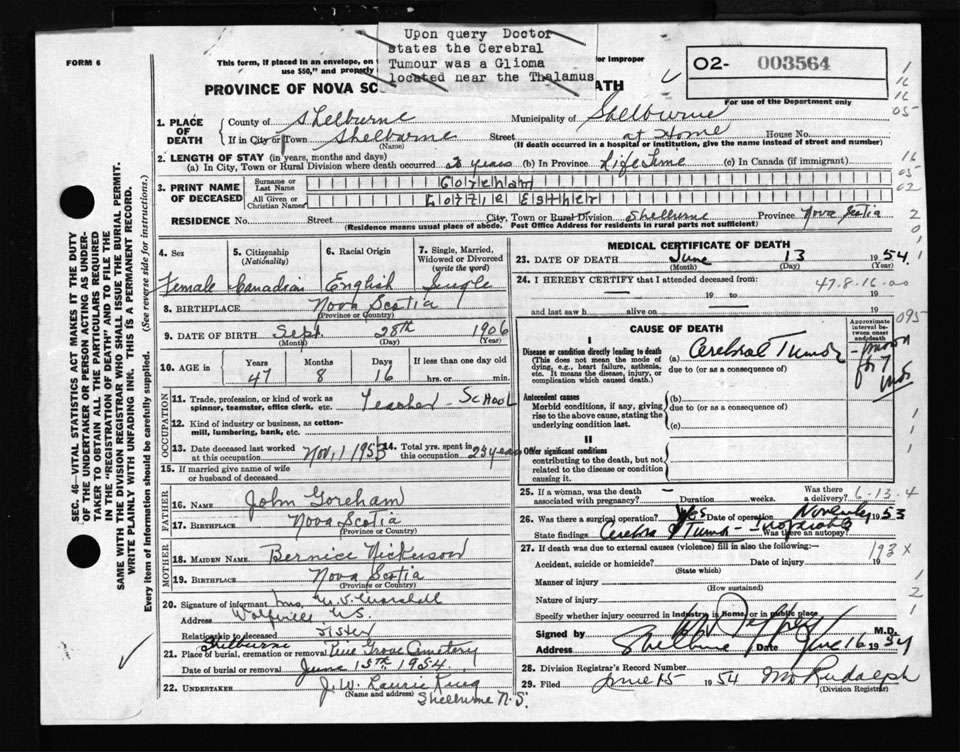 Upon query Doctor
states the Cerebral
Tumour was a Glioma
located near the Thalamus
FORM 6
This form, if placed in an envelope, on
use $50," and properly
for Improper
PROVINCE OF NOVA SC
ATH
O2- 003564
For use of the Department only
1. PLACE OF DEATH
County of Shelburne Municipality of Shelburne
If in City or Town Shelburne Street at Home House No.
(Name) (If death occurred in a hospital or institution, give the name instead of street and number)
2. LENGTH OF STAY (in years, months and days)
(a) In City, Town or Rural Division where death occurred years (b) In Province Life Time (c) In Canada (if immigrant)
3. PRINT NAME OF DECEASED
Surname or Last Name Goreham
All Given or Christian Names Esther
RESIDENCE No. Street City, Town or Rural Division Shelburne Province Nova Scotia
(Residence means usual place of abode. Post Office Address for residents in rural parts not sufficient)
4. Sex Female
5. Citizenship (Nationality) Canadian
6. Racial Origin English
7. Single, Married, Widowed or Divorced (write the word) Single
8. BIRTHPLACE Nova Scotia
(Province or Country)
9. DATE OF BIRTH Sept 28th 1906
(Month) (Day) (Year)
10. AGE in Years 47 Months 8 Days 16 If less than one day old
hrs. or min.
OCCUPATION
11. Trade, profession, or kind of work as spinner, teamster, office clerk, etc. Teacher - School
12. Kind of industry or business, as cotton-mill, lumbering, bank, etc.
13. Date deceased last worked at this occupation Nov, 1 1953
14. Total yrs. spent in this occupation years
15. If married give name of wife or husband of deceased
FATHER
16. NAME John Goreham
17. BIRTHPLACE Nova Scotia
(Province or Country)
MOTHER
18. MAIDEN NAME Bernice Nickerson
19. BIRTHPLACE Nova Scotia
(Province or Country)
20. Signature of informant Mrs.
Address Wolfville N S
Relationship to deceased Sister
21. Place of burial, cremation or removal Shelburne Pine Grove Cemetery
Date of burial or removal June 15th 1954.
22. UNDERTAKER J. W. Laurie King
(Name and address) Shelburne N.S.
MEDICAL CERTIFICATE OF DEATH
23. DATE OF DEATH June 13 1954.
(Month) (Day) (Year)
24. I HEREBY CERTIFY that I attended deceased from:
47.8.16.00
19 to 19
and last saw h alive on 19
CAUSE OF DEATH
Approximate interval between onset and death
I
Disease or condition directly leading to death (a) Cerebral Tumor
(This does not mean the mode of dying, e.g., heart failure, asthenia, etc. It means the disease, injury, or complication which caused death.)
due to (or as a consequence of)
known for 7 mos
Antecedent causes (b)
Morbid conditions, if any, giving rise to the above cause, stating the underlying condition last.
due to (or as a consequence of)
(c)
II
Other significant conditions
contributing to the death, but not related to the disease or condition causing it.
25. If a woman, was the death associated with pregnancy? Duration weeks. Was there a delivery? 6-13-4
26. Was there a surgical operation? Yes Date of operation November 1953
State findings Cerebral Tumor - Inoperable Was there an autopsy?
27. If death was due to external causes (violence) fill in also the following:- 193X
Accident, suicide or homicide? Date of injury 19
(State which)
Manner of injury
(How sustained)
Nature of injury
Specify whether injury occurred in Industry, in Home, or in public place
Signed by M.D.
Address Shelburne Date June 16 1954
28. Division Registrar's Record Number
29. Filed June 15 1954 Rudolph
(Division Registrar)
095
SEC. 46—VITAL STATISTICS ACT MAKES IT THE DUTY
OF THE UNDERTAKER OR PERSON ACTING AS UNDER-
TAKER TO OBTAIN ALL THE PARTICULARS REQUIRED
IN THE "REGISTRATION OF DEATH" AND TO FILE THE
SAME WITH THE DIVISION REGISTRAR WHO SHALL ISSUE THE BURIAL PERMIT.
WRITE PLAINLY WITH UNFADING INK. THIS IS A PERMANENT RECORD.
Every item of information should be carefully supplied. (See reverse side for instructions.)